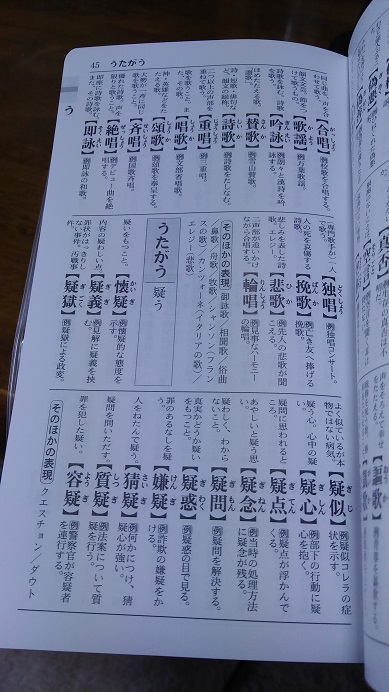 45 うたがう
う
同じ曲を、声を合わせて歌う。
【合唱】がっしょう
例校歌を合唱する。
【歌謡】かよう
例万葉歌謡。
詩歌を詠む。詩歌を吟じる。
【吟詠】ぎんえい
例朗々と漢詩を吟詠する。
ほめたたえる歌。
【賛歌】さんか
例雪山賛歌。
詩・短歌・俳句など、韻文の総称。
【詩歌】しいか
例詩歌をたしなむ。
二つ以上の声部を重ねて歌う。
【重唱】じゅうしょう
例二重唱。
歌を歌うこと。また、その歌。
【唱歌】しょうか
例文部省唱歌。
神・英雄などをたたえる歌。
【頌歌】しょうか
例頌歌を奉呈する。
大勢が一斉に同じ旋律を歌う。
【斉唱】せいしょう
例国歌斉唱。
優れた詩歌。声を限りと歌うこと。
【絶唱】ぜっしょう
例デビュー曲を絶唱する。
即座に詩歌を詠む。また、その詩歌。
【即詠】そくえい
例即詠の和歌。
専門歌手が一人で歌う。
【独唱】どくしょう
例独唱コンサート。
人の死を哀傷する詩歌。
【挽歌】ばんか
例亡き友へ捧げる挽歌。
悲しみを表した詩歌。エレジー。
【悲歌】ひか
例先人の悲歌が聞こえる。
二声部が追いかけながら合唱する。
【輪唱】りんしょう
例見事なハーモニーの輪唱。
そのほかの表現
御詠歌／相聞歌／俗曲／鼻歌／舟歌／牧歌／シャンソン(フランスの歌)／カンツォーネ(イタリアの歌)／エレジー(悲歌)
うたがう 疑う
疑いをもつこと。
【懐疑】かいぎ
例懐疑的な態度を示す。
内容の疑わしい点。
【疑義】ぎぎ
例見解に疑義を挟む。
罪状がはっきりしない事件。汚職事件。
【疑獄】ぎごく
例疑獄による政変。
よく似ているが本物ではない病気。
【疑似】ぎじ
例疑似コレラの症状を示す。
疑う心。心中の疑い。
【疑心】ぎしん
例部下の行動に疑心を抱く。
疑問に思われるところ。
【疑点】ぎてん
例疑点が浮かんでくる。
あやしいと疑う思い。
【疑念】ぎねん
例当時の処理方法に疑念が残る。
疑わしく、わからないこと。
【疑問】ぎもん
例疑問を解決する。
真実かどうか疑いをもつこと。
【疑惑】ぎわく
例疑惑の目で見る。
罪のあるなしを疑う。
【嫌疑】けんぎ
例詐欺の嫌疑をかける。
人をねたんで疑う。
【猜疑】さいぎ
例何かにつけ、猜疑心が強い。
疑問を問いただす。
【質疑】しつぎ
例法案について質疑を行う。
罪を犯した疑い。
【容疑】ようぎ
例警察官が容疑者を連行する。
そのほかの表現
クエスチョン／ダウト